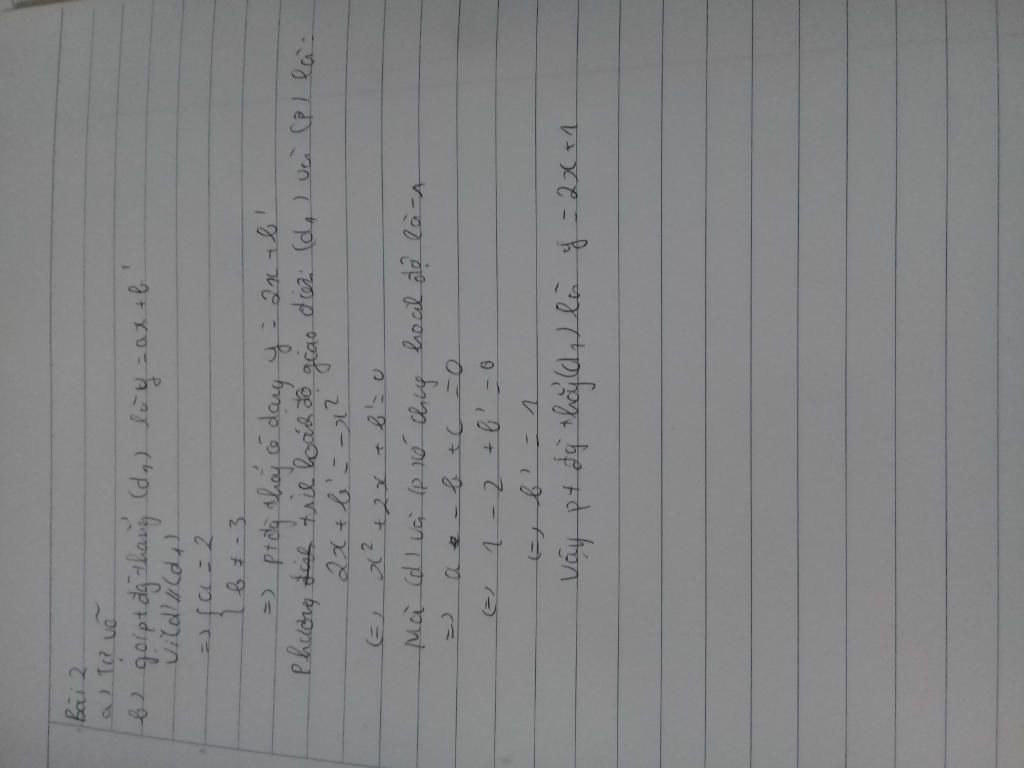 Bài 2
a) Tự vẽ
b) gọi pt đg thẳng (d1) là y = ax + b'
Vì (d) // (d1)
=> { a = 2
{ b ≠ -3
=> pt đg thẳng có dạng y = 2x + b'
Phương trìh hoàh độ giao điểm (d1) với (P) là:
2x + b' = -x²
(=) x² + 2x + b' = 0
Mà (d) và (P) có chung hoàh độ là -1
=> a - b + c = 0
(=) 1 - 2 + b' = 0
(=) b' = 1
Vậy pt đg thẳng (d1) là y = 2x + 1